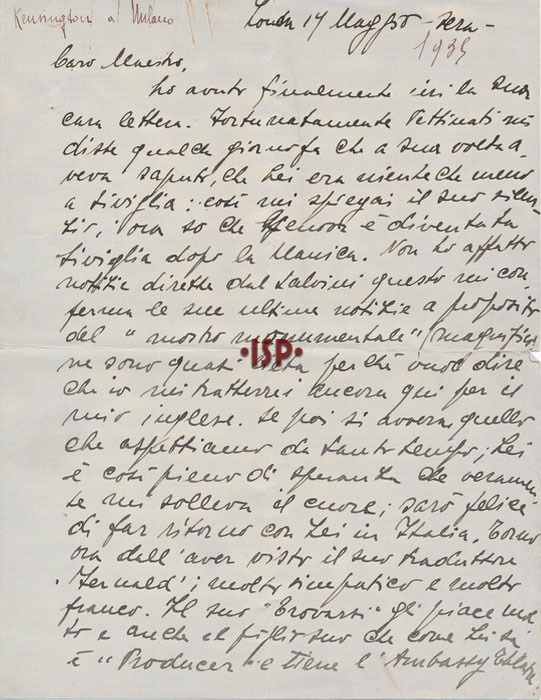 Kensington a Milano
Londra 14 Maggio - sera -
1935
Caro Maestro,
ho avuto finalmente ieri la sua
cara lettera. Fortunatamente Pettinati mi
disse qualche giorno fa che a sua volta a
veva saputo, che Lei era nientechemeno
a Siviglia: così mi spiegai il suo silen-
zio, ora so che è diventata
Siviglia dopo la Manica. Non ho affatto
notizie dirette dal Salvini questo mi con
ferma le sue ultime notizie a proposito
del "mostro monumentale" magnifico
ne sono quasi lieta perché vuol dire
che io mi tratterrei ancora qui per il
mio inglese. Se poi si avvera quello
che aspettiamo da tanto tempo; Lei
è così pieno di speranza che veramen
te mi solleva il cuore; sarò felice
di far ritorno con Lei in Italia. Torno
ora dall'aver visto il suo traduttore
molto simpatico e molto
franco. Il suo "Trovarsi" gli piace mol
to e anche al figlio suo che come Lei sa
è "Producer" e tiene l'Ambassy
•ISP•